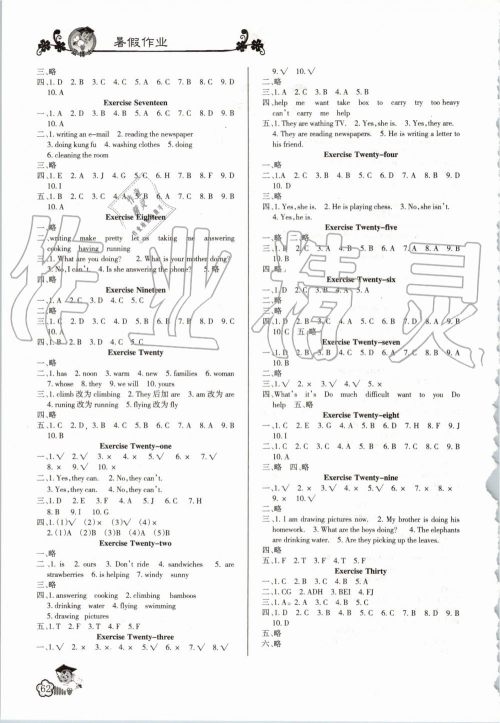 暑假作业
三、略
四、1. D 2. B 3. C 4. C 5. A 6. C 7. A 8. C 9. D
10. A
Exercise Seventeen
一、略
二、1. writing an e-mail 2. reading the newspaper
3. doing kung fu 4. washing clothes 5. doing
6. cleaning the room
三、略
四、1. E 2. A 3. J 4. G 5. C 6. H 7. B 8. D 9. F
10. I
五、1. B 2. C 3. A 4. C 5. A 6. B 7. C 8. B 9. C
10. A
Exercise Eighteen
一、略
二、writing make pretty let us taking answering
cooking answering having
三、1. What are you doing? 2. What is your mother doing?
3. No, I can't. 4. Is she answering the phone? 5. 略
四、略
Exercise Nineteen
一、1. A 2. C 3. D 4. C 5. C
二、略
三、1. C 2. D 3. B 4. C 5. D 6. B 7. A 8. C 9. B
10. D
四、1. B 2. A 3. D 4. C 5. C
Exercise Twenty
一、略
二、1. has 2. noon 3. warm 4. new 5. families 6. woman
7. whose 8. they 9. will 10. yours
三、1. climb 改为 climbing 2. They 后加 are 3. am 改为 are
4. runing 改为 running 5. flying 改为 fly
四、1. C 2. D 3. B 4. C 5. A 6. B 7. B 8. A 9. D
10. B
Exercise Twenty-one
一、1. √ 2. √ 3. × 4. √ 5. √ 6. × 7. √
8. × 9. √ 10. ×
二、1. Yes, they can. 2. No, they can't.
3. Yes, they can. 4. No, they can't.
三、1. D 2. E 3. F 4. A 5. J 6. G 7. H 8. C
9. I 10. B
四、1. (1)√ (2)× (3)√ (4)×
2. (1)A (2)B (3)D (4)C
Exercise Twenty-two
一、略
二、1. is 2. ours 3. Don't ride 4. sandwiches 5. are
strawberries 6. is helping 7. windy sunny
三、略
四、1. answering cooking 2. climbing bamboos
3. drinking water 4. flying swimming
5. drawing pictures
五、1. T 2. F 3. T 4. F 5. F
Exercise Twenty-three
一、1. √ 2. × 3. × 4. × 5. √ 6. × 7. √ 8. √
9. √ 10. √
二、略
三、1. A 2. C 3. B 4. A 5. B
四、help me want take box to carry try too heavy
can't carry me help
五、1. They are wathing TV. 2. Yes, she is. 3. Yes, they are.
4. They are reading newspapers. 5. He is writing a letter to
his friend.
Exercise Twenty-four
一、略
二、1. C 2. A 3. B 4. B 5. D 6. A 7. A 8. B 9. D
10. D
三、略
四、1. Yes, she is. 2. He is playing chess. 3. No, she isn't.
4. Yes, he is.
Exercise Twenty-five
一、略 二、略
三、1. B 2. C 3. B 4. C 5. B 6. C 7. A 8. A 9. B
10. B
Exercise Twenty-six
一、略
二、1. D 2. D 3. B 4. A 5. A
三、略
四、1. D 2. B 3. B 4. A 5. C 6. B 7. D 8. A 9. B
10. C 五、略
Exercise Twenty-seven
一、1. D 2. B 3. B 4. C 5. D 6. A 7. C 8. A 9. C
10. B
二、略
三、1. √ 2. × 3. √ 4. × 5. √
四、What's it's Do much difficult want to you Do
help 五、略
Exercise Twenty-eight
一、1. C 2. E 3. G 4. A 5. B 6. D 7. H 8. F 9. J
10. I
二、1. C 2. C 3. C 4. A 5. A 6. C 7. C 8. B 9. A
10. C
三、略 四、略
Exercise Twenty-nine
一、1. √ 2. × 3. √ 4. × 5. √ 6. × 7. × 8. ×
9. × 10. ×
二、略
三、1. I am drawing pictures now. 2. My brother is doing his
homework. 3. What are the boys doing? 4. The elephants
are drinking water. 5. Are they picking up the leaves.
四、略
五、1. F 2. T 3. T 4. T 5. F
Exercise Thirty
一、1. C 2. B 3. C 4. B 5. A
二、1. CG 2. ADH 3. BEI 4. FJ
三、1. A 2. C 3. B 4. A 5. B
四、1. D 2. B 3. C 4. C 5. A 6. C 7. A 8. C 9. D
10. D
五、略
六、略
62
作业精灵